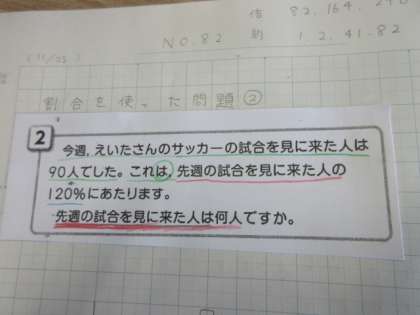 倍 82.164.246
NO.82 約 1.2.41.82
(11/25)
割合を使った問題②
2
今週,えいたさんのサッカーの試合を見に来た人は
90人でした。これは,先週の試合を見に来た人の
120%にあたります。
先週の試合を見に来た人は何人ですか。